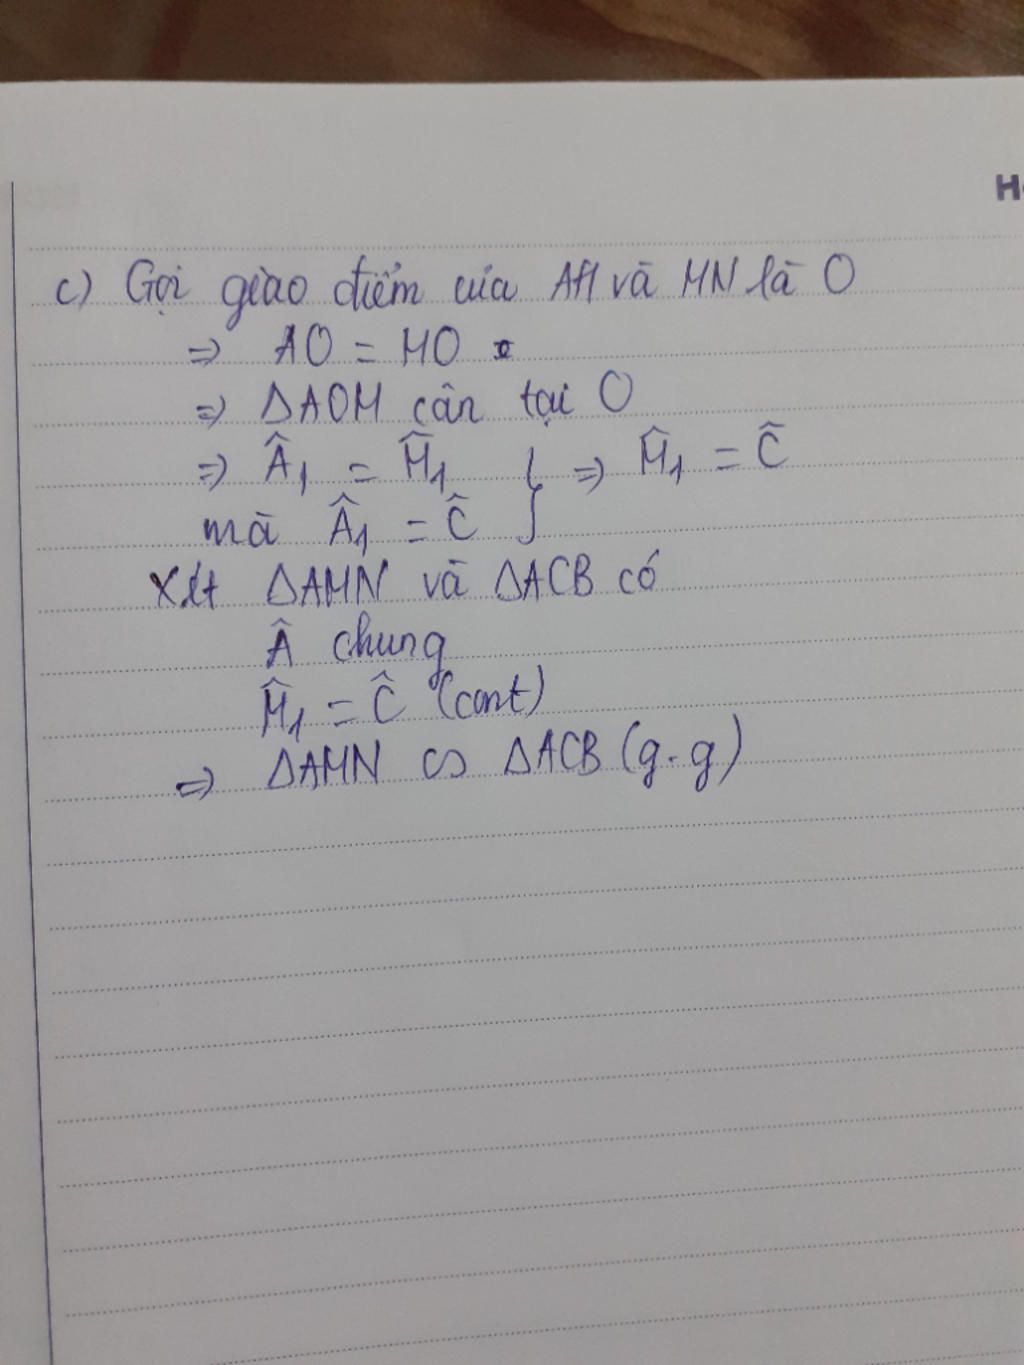 H
c) Gọi giao điểm của AH và MN là O
⇒ AO = MO
⇒ ΔAOM cân tại O
⇒ Â₁ = M̂₁ } ⇒ M̂₁ = Ĉ
mà Â₁ = Ĉ
Xét ΔAMN và ΔACB có
Â chung
M̂₁ = Ĉ (cmt)
⇒ ΔAMN ∽ ΔACB (g.g)